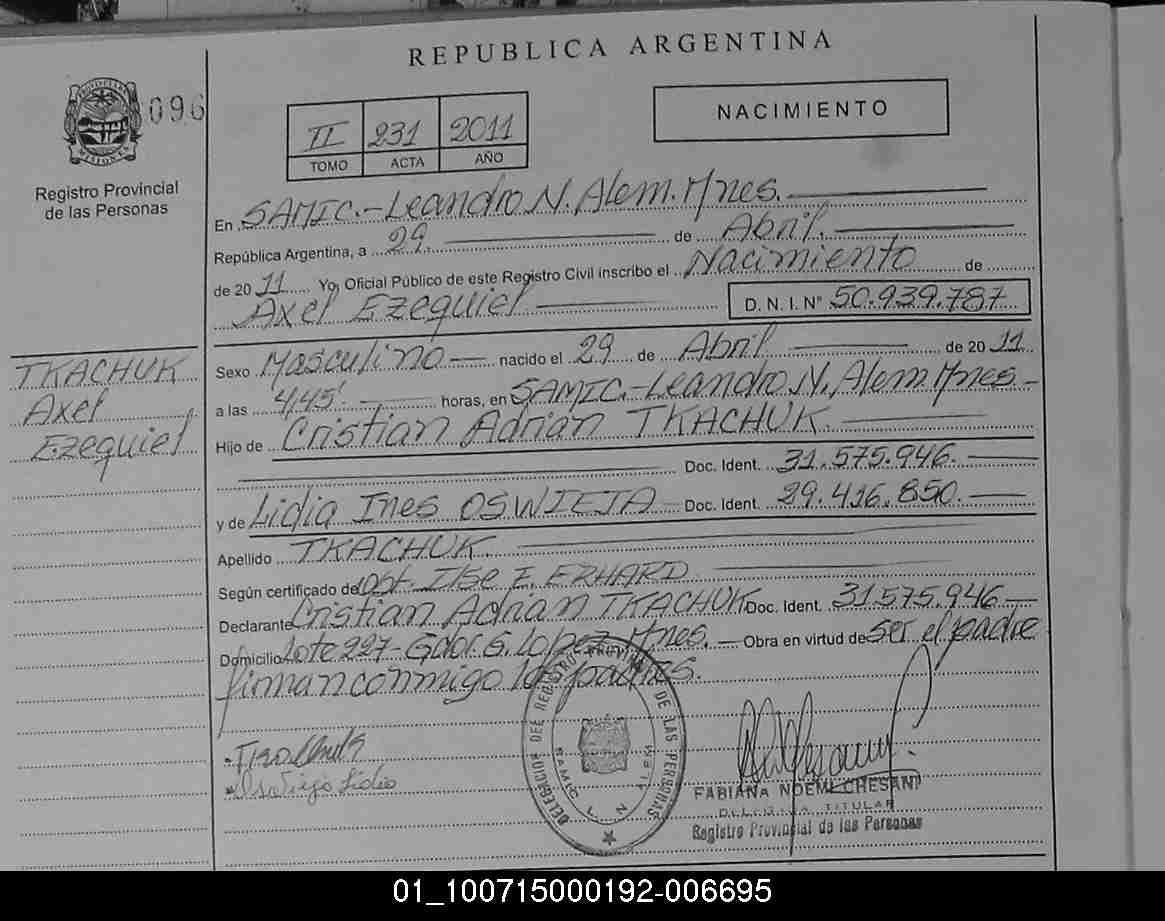 REPUBLICA ARGENTINA
PROVINCIA
MISIONES
096
Registro Provincial
de las Personas
II 231 2011
TOMO ACTA AÑO
NACIMIENTO
En SAMIC.-Leandro N. Alem. Mnes.
República Argentina, a 29. de Abril.
de 2011 Yo, Oficial Público de este Registro Civil inscribo el Nacimiento de
Axel Ezequiel D. N. I. Nº 50.939.787
TKACHUK
Axel
Ezequiel
Sexo Masculino nacido el 29 de Abril de 2011
a las 4,45' horas, en SAMIC.-Leandro N. Alem Mnes-
Hijo de Cristian Adrian TKACHUK.
Doc. Ident. 31.575.946.
y de Lidia Ines OSWIEJA Doc. Ident. 29.416.850.
Apellido TKACHUK.
Según certificado de Obst. Ilse E. ERHARD
Declarante Cristian Adrian TKACHUK Doc. Ident. 31.575.946
Domicilio Lote 227-Gdor.G. Lopez. Mnes. Obra en virtud de ser el padre
firman conmigo los padres.
DELEGACION DEL REGISTRO PROVINCIAL DE LAS PERSONAS
SAMIC L. N. ALEM
FABIANA NOEMI CHESANI
DELEGADA TITULAR
Registro Provincial de las Personas
01_100715000192-006695